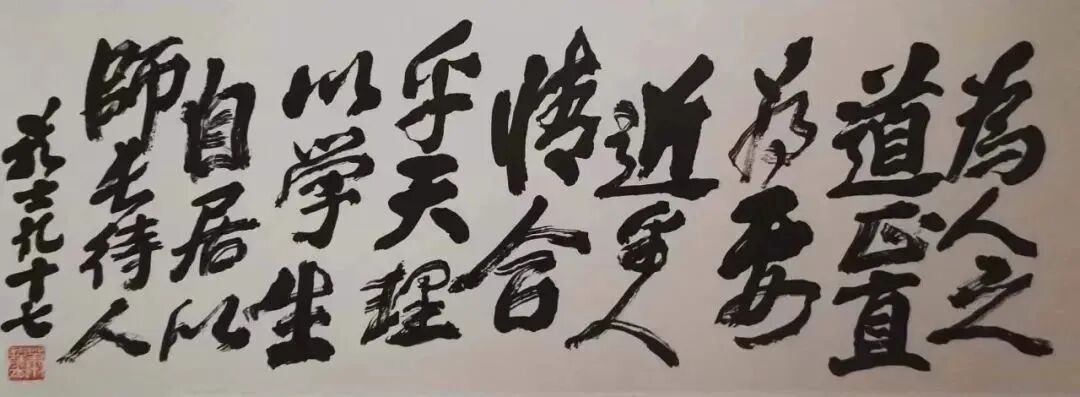 為人之
道正直
為要
近乎人
情合
乎天理
以学生
自居以
師長待人
士九十七